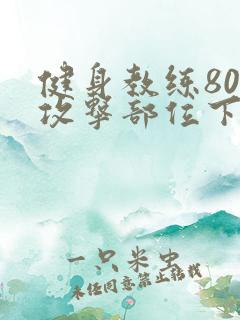 健身教练80
攻撃部位下
一只米虫
未经同意禁止转载